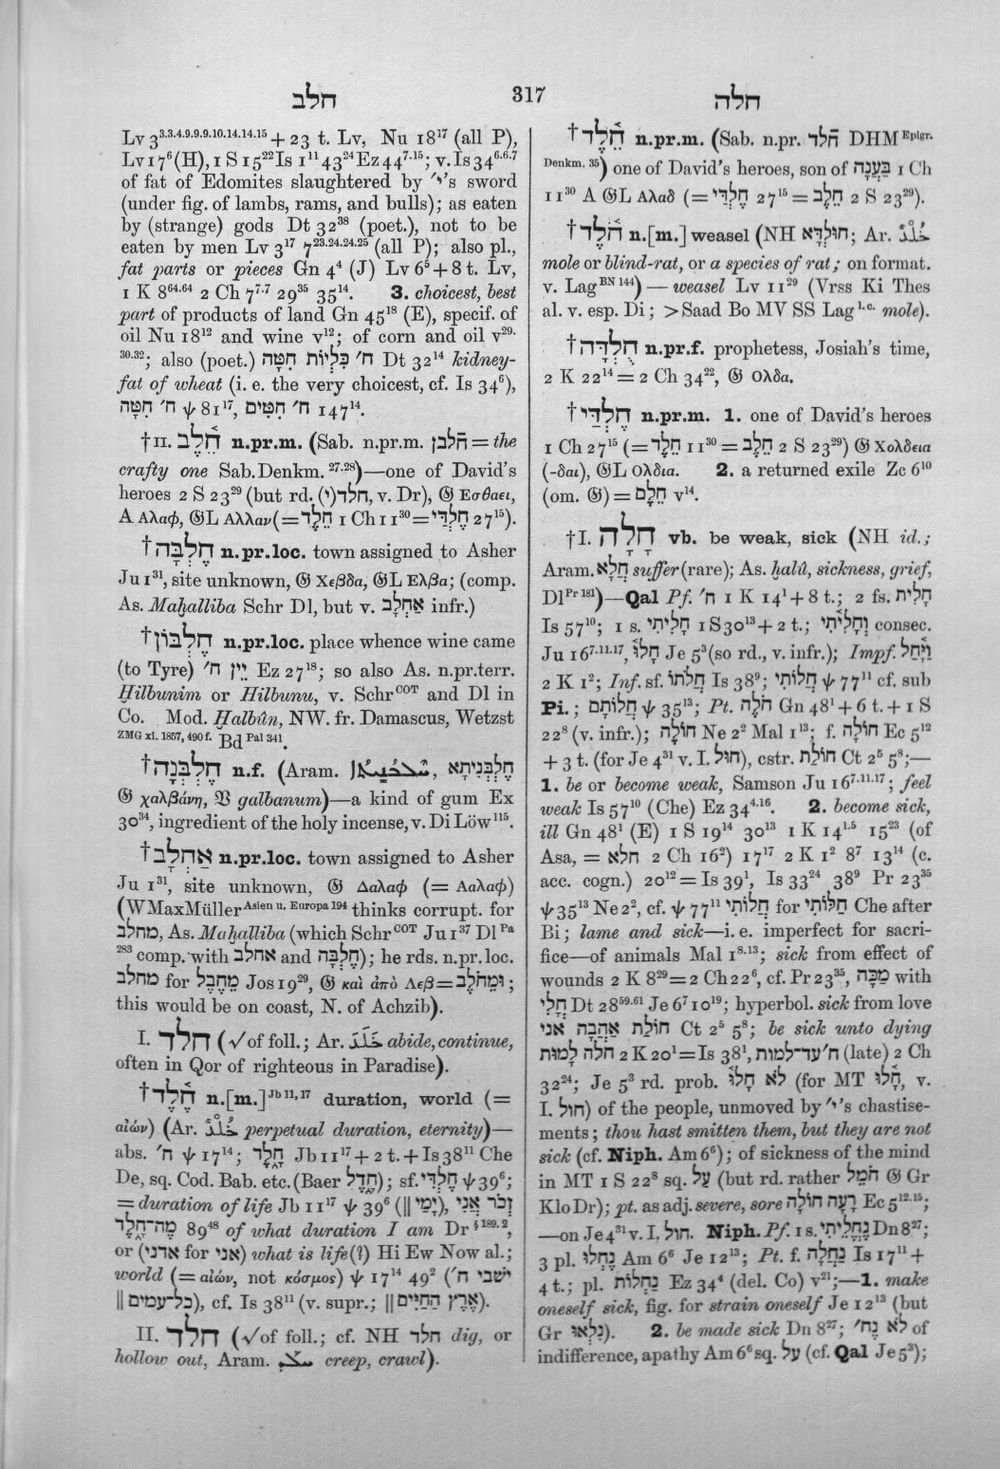 חלב
317
חלה
Lv 3³·³·⁴·⁹·⁹·⁹·¹⁰·¹⁴·¹⁴·¹⁵ + 23 t. Lv, Nu 18¹⁷ (all P),
Lv 17⁶ (H), 1 S 15²² Is 1¹¹ 43²⁴ Ez 44⁷·¹⁵; v. Is 34⁶·⁶·⁷
of fat of Edomites slaughtered by י״'s sword
(under fig. of lambs, rams, and bulls); as eaten
by (strange) gods Dt 32³⁸ (poet.), not to be
eaten by men Lv 3¹⁷ 7²³·²⁴·²⁴·²⁵ (all P); also pl.,
fat parts or pieces Gn 4⁴ (J) Lv 6⁵ + 8 t. Lv,
1 K 8⁶⁴·⁶⁴ 2 Ch 7⁷·⁷ 29³⁵ 35¹⁴. 3. choicest, best
part of products of land Gn 45¹⁸ (E), specif. of
oil Nu 18¹² and wine v¹²; of corn and oil v²⁹·
³⁰·³²; also (poet.) ח׳ כִּלְיוֹת חִטָּה Dt 32¹⁴ kidney-
fat of wheat (i. e. the very choicest, cf. Is 34⁶),
ח׳ חִטָּה ψ 81¹⁷, ח׳ חִטִּים 147¹⁴.
†II. חֵ֫לֶב n.pr.m. (Sab. n.pr.m. חלבן = the
crafty one Sab.Denkm. ²⁷·²⁸)—one of David's
heroes 2 S 23²⁹ (but rd. חלד(י), v. Dr), 𝔊 Εσθαει,
A Αλαφ, 𝔊L Αλλαν (= חֵלֶד 1 Ch 11³⁰ = חֶלְדַּי 27¹⁵).
†חֶלְבָּה n.pr.loc. town assigned to Asher
Ju 1³¹, site unknown, 𝔊 Χεβδα, 𝔊L Ελβα; (comp.
As. Maḫalliba Schr Dl, but v. אַחְלָב infr.)
†חֶלְבּוֹן n.pr.loc. place whence wine came
(to Tyre) יֵין ח׳ Ez 27¹⁸; so also As. n.pr.terr.
Ḫilbunim or Ḫilbunu, v. Schr COT and Dl in
Co. Mod. Ḫalbûn, NW. fr. Damascus, Wetzst
ZMG xi. 1857, 490 f. Bd Pal 341.
†חֶלְבְּנָה n.f. (Aram. חֶלְבְּנִיתָא,
𝔊 χαλβάνη, 𝔙 galbanum)—a kind of gum Ex
30³⁴, ingredient of the holy incense, v. Di Löw¹¹⁵.
†אַחְלָב n.pr.loc. town assigned to Asher
Ju 1³¹, site unknown, 𝔊 Δαλαφ (= Ααλαφ)
(WMaxMüller Asien u. Europa 194 thinks corrupt. for
מחלב, As. Maḫalliba (which Schr COT Ju 1³⁷ Dl Pa
283 comp. with אחלב and חֶלְבָּה); he rds. n.pr.loc.
מחלב for מֵחֶבֶל Jos 19²⁹, 𝔊 καὶ ἀπὸ Λεβ = וּמֵחֹלֶב;
this would be on coast, N. of Achzib).
I. חלד (√of foll.; Ar. خَلَدَ abide, continue,
often in Qor of righteous in Paradise).
†חֶ֫לֶד n.[m.] Jb 11, 17 duration, world (=
αἰών) (Ar. خُلْدٌ perpetual duration, eternity)—
abs. ח׳ ψ 17¹⁴; חָלֶד Jb 11¹⁷ + 2 t. + Is 38¹¹ Che
De, sq. Cod. Bab. etc. (Baer חֶדֶל); sf. חֶלְדִּי ψ 39⁶;
= duration of life Jb 11¹⁷ ψ 39⁶ (‖ יָמַי), זְכֹר אֲנִי
מֶה־חָלֶד 89⁴⁸ of what duration I am Dr § 189. 2,
or (אדני for אני) what is life(?) Hi Ew Now al.;
world (= αἰών, not κόσμος) ψ 17¹⁴ 49² (ישבי ח׳
‖ כל־עמים), cf. Is 38¹¹ (v. supr.; ‖ אֶרֶץ הַחַיִּים).
II. חלד (√of foll.; cf. NH חלד dig, or
hollow out, Aram. creep, crawl).
†חֵ֫לֶד n.pr.m. (Sab. n.pr. חלד DHM Epigr.
Denkm. 35) one of David's heroes, son of בַּעֲנָה 1 Ch
11³⁰ A 𝔊L Αλαδ (= חֶלְדַּי 27¹⁵ = חֵלֶב 2 S 23²⁹).
†חֹ֫לֶד n.[m.] weasel (NH חוּלְדָּא; Ar. خُلْدٌ
mole or blind-rat, or a species of rat; on format.
v. Lag BN 144) — weasel Lv 11²⁹ (Vrss Ki Thes
al. v. esp. Di; > Saad Bo MV SS Lag l.c. mole).
†חֻלְדָּה n.pr.f. prophetess, Josiah's time,
2 K 22¹⁴ = 2 Ch 34²², 𝔊 Ολδα.
†חֶלְדַּי n.pr.m. 1. one of David's heroes
1 Ch 27¹⁵ (= חֵלֶד 11³⁰ = חֵלֶב 2 S 23²⁹) 𝔊 Χολδεια
(-δαι), 𝔊L Ολδια. 2. a returned exile Zc 6¹⁰
(om. 𝔊) = חֵלֶם v¹⁴.
†I. חָלָה vb. be weak, sick (NH id.;
Aram. חֲלָא suffer (rare); As. ḫalû, sickness, grief,
Dl Pr 181)—Qal Pf. ח׳ 1 K 14¹ + 8 t.; 2 fs. חָלִית
Is 57¹⁰; 1 s. חָלִיתִי 1 S 30¹³ + 2 t.; וְחָלִ֫יתִי consec.
Ju 16⁷·¹¹·¹⁷, חָלוּ֫ Je 5³ (so rd., v. infr.); Impf. וַיָּ֫חַל
2 K 1²; Inf. sf. חֲלֹתוֹ Is 38⁹; חַלּוֹתִי ψ 77¹¹ cf. sub
Pi.; חֲלוֹתָם ψ 35¹³; Pt. חֹלֶה Gn 48¹ + 6 t. + 1 S
22⁸ (v. infr.); חוֹלֶה Ne 2² Mal 1¹³; f. חוֹלָה Ec 5¹²
+ 3 t. (for Je 4³¹ v. I. חוּל), cstr. חוֹלַת Ct 2⁵ 5⁸;—
1. be or become weak, Samson Ju 16⁷·¹¹·¹⁷; feel
weak Is 57¹⁰ (Che) Ez 34⁴·¹⁶. 2. become sick,
ill Gn 48¹ (E) 1 S 19¹⁴ 30¹³ 1 K 14¹·⁵ 15²³ (of
Asa, = חלא 2 Ch 16²) 17¹⁷ 2 K 1² 8⁷ 13¹⁴ (c.
acc. cogn.) 20¹² = Is 39¹, Is 33²⁴ 38⁹ Pr 23³⁵
ψ 35¹³ Ne 2², cf. ψ 77¹¹ חֲלוֹתִי for חַלּוֹתִי Che after
Bi; lame and sick—i. e. imperfect for sacri-
fice—of animals Mal 1⁸·¹³; sick from effect of
wounds 2 K 8²⁹ = 2 Ch 22⁶, cf. Pr 23³⁵, מַכָּה with
חֳלִי Dt 28⁵⁹·⁶¹ Je 6⁷ 10¹⁹; hyperbol. sick from love
חוֹלַת אַהֲבָה אֹנִי Ct 2⁵ 5⁸; be sick unto dying
חֹלה לָמוּת 2 K 20¹ = Is 38¹, ח׳ עד־למות (late) 2 Ch
32²⁴; Je 5³ rd. prob. לֹא חָלוּ֫ (for MT חָ֫לוּ, v.
I. חול) of the people, unmoved by י״'s chastise-
ments; thou hast smitten them, but they are not
sick (cf. Niph. Am 6⁶); of sickness of the mind
in MT 1 S 22⁸ sq. עַל (but rd. rather חֹמֵל 𝔊 Gr
Klo Dr); pt. as adj. severe, sore רָעָה חוֹלָה Ec 5¹²·¹⁵;
—on Je 4³¹ v. I. חול. Niph. Pf. 1 s. נֶחֱלֵיתִי Dn 8²⁷;
3 pl. נֶחְלוּ Am 6⁶ Je 12¹³; Pt. f. נַחְלָה Is 17¹¹ +
4 t.; pl. נַחְלוֹת Ez 34⁴ (del. Co) v²¹;—1. make
oneself sick, fig. for strain oneself Je 12¹³ (but
Gr נִלְאוּ). 2. be made sick Dn 8²⁷; לֹא נֶח׳ of
indifference, apathy Am 6⁶ sq. עַל (cf. Qal Je 5³);